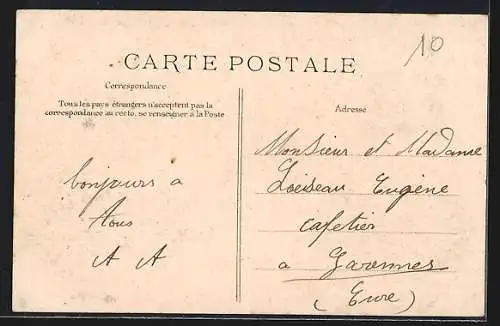 10
CARTE POSTALE
Correspondance
Tous les pays étrangers n'acceptent pas la
correspondance au recto, se renseigner à la Poste
Adresse
bonjours a
tous
A A
Monsieur et Madame
Loiseau Eugène
cafetier
a Garennes
(Eure)